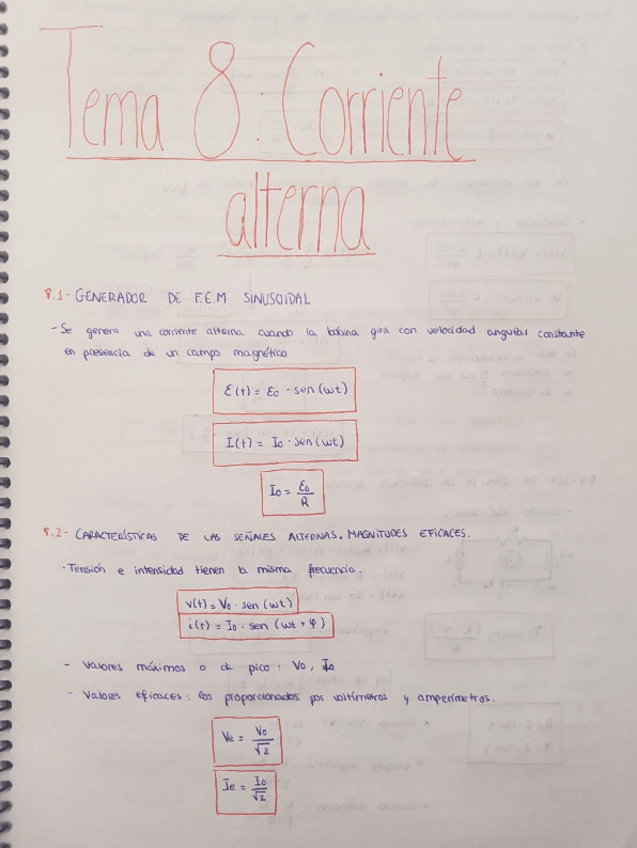 Tema 8: Corriente
alterna
8.1- GENERADOR DE F.E.M SINUSOIDAL
- Se genera una corriente alterna cuando la bobina gira con velocidad angular constante
en presencia de un campo magnético.
ε(t) = ε₀ · sen(ωt)
I(t) = I₀ · sen(ωt)
I₀ = ε₀/R
8.2- CARACTERÍSTICAS DE LAS SEÑALES ALTERNAS. MAGNITUDES EFICACES.
· Tensión e intensidad tienen la misma frecuencia.
v(t) = V₀ · sen(ωt)
i(t) = I₀ · sen(ωt + φ)
- Valores máximos o de pico: V₀, I₀.
- Valores eficaces: los proporcionados por voltímetros y amperímetros.
Ve = V₀/√2
Ie = I₀/√2